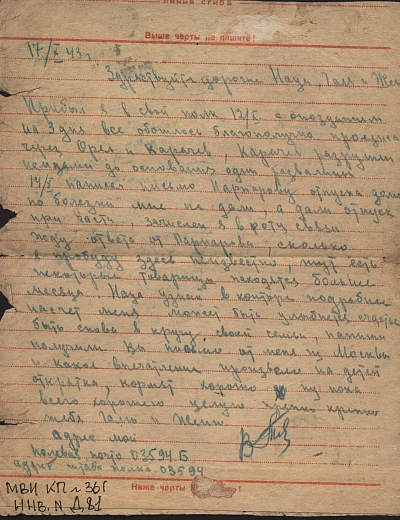 Линия сгиба
Выше черты не пишите!
17/X 43 г.
Здравствуйте дорогие Надя, Галя и Женя
Прибыл я в свой полк 13/X с опозданием
на 3 дня все обошлось благополучно проезжал
через Орел и Карачев Карачев разрушен
немцами до основания одни развалины
14/X написал письмо Парпарову отпуска дома
по болезни мне не дали, а дали отпуск
при части, зачислен я в роту связи
жду ответа от Парпарова, сколько
я пробуду здесь неизвестно, тут есть
некоторые товарищи находятся больше
месяца. Надя узнай в конторе подробнее
насчет меня может быть улыбнется счастье
быть снова в кругу своей семьи, напиши
получили Вы письмо от меня из Москвы
и какое впечатление произвело на детей
открытка, кормят хорошо ну пока
всего хорошего целую крепко крепко
тебя Галю и Женю.
Адрес мой
полевая почта 03594 Б
адрес штаба полка 03594
Ниже черты !
МВИ КП № 361
ИНВ. N Д.81